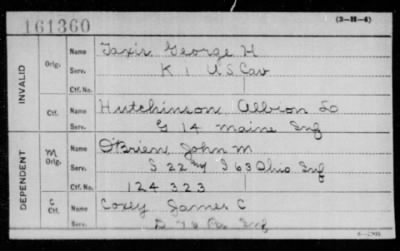 161360
(3-H-4)
INVALID
Orig.
Name
George H
Serv.
K 1 U.S. Cav
Ctf. No.
Ctf.
Name
Hutchinson, Albion
Serv.
G 14 Maine Inf
DEPENDENT
M
Orig.
Name
O'Brien, John M.
Serv.
63 Ohio Inf
Ctf. No.
124 323
C
Ctf.
Name
Coxey James C
Serv.
Inf